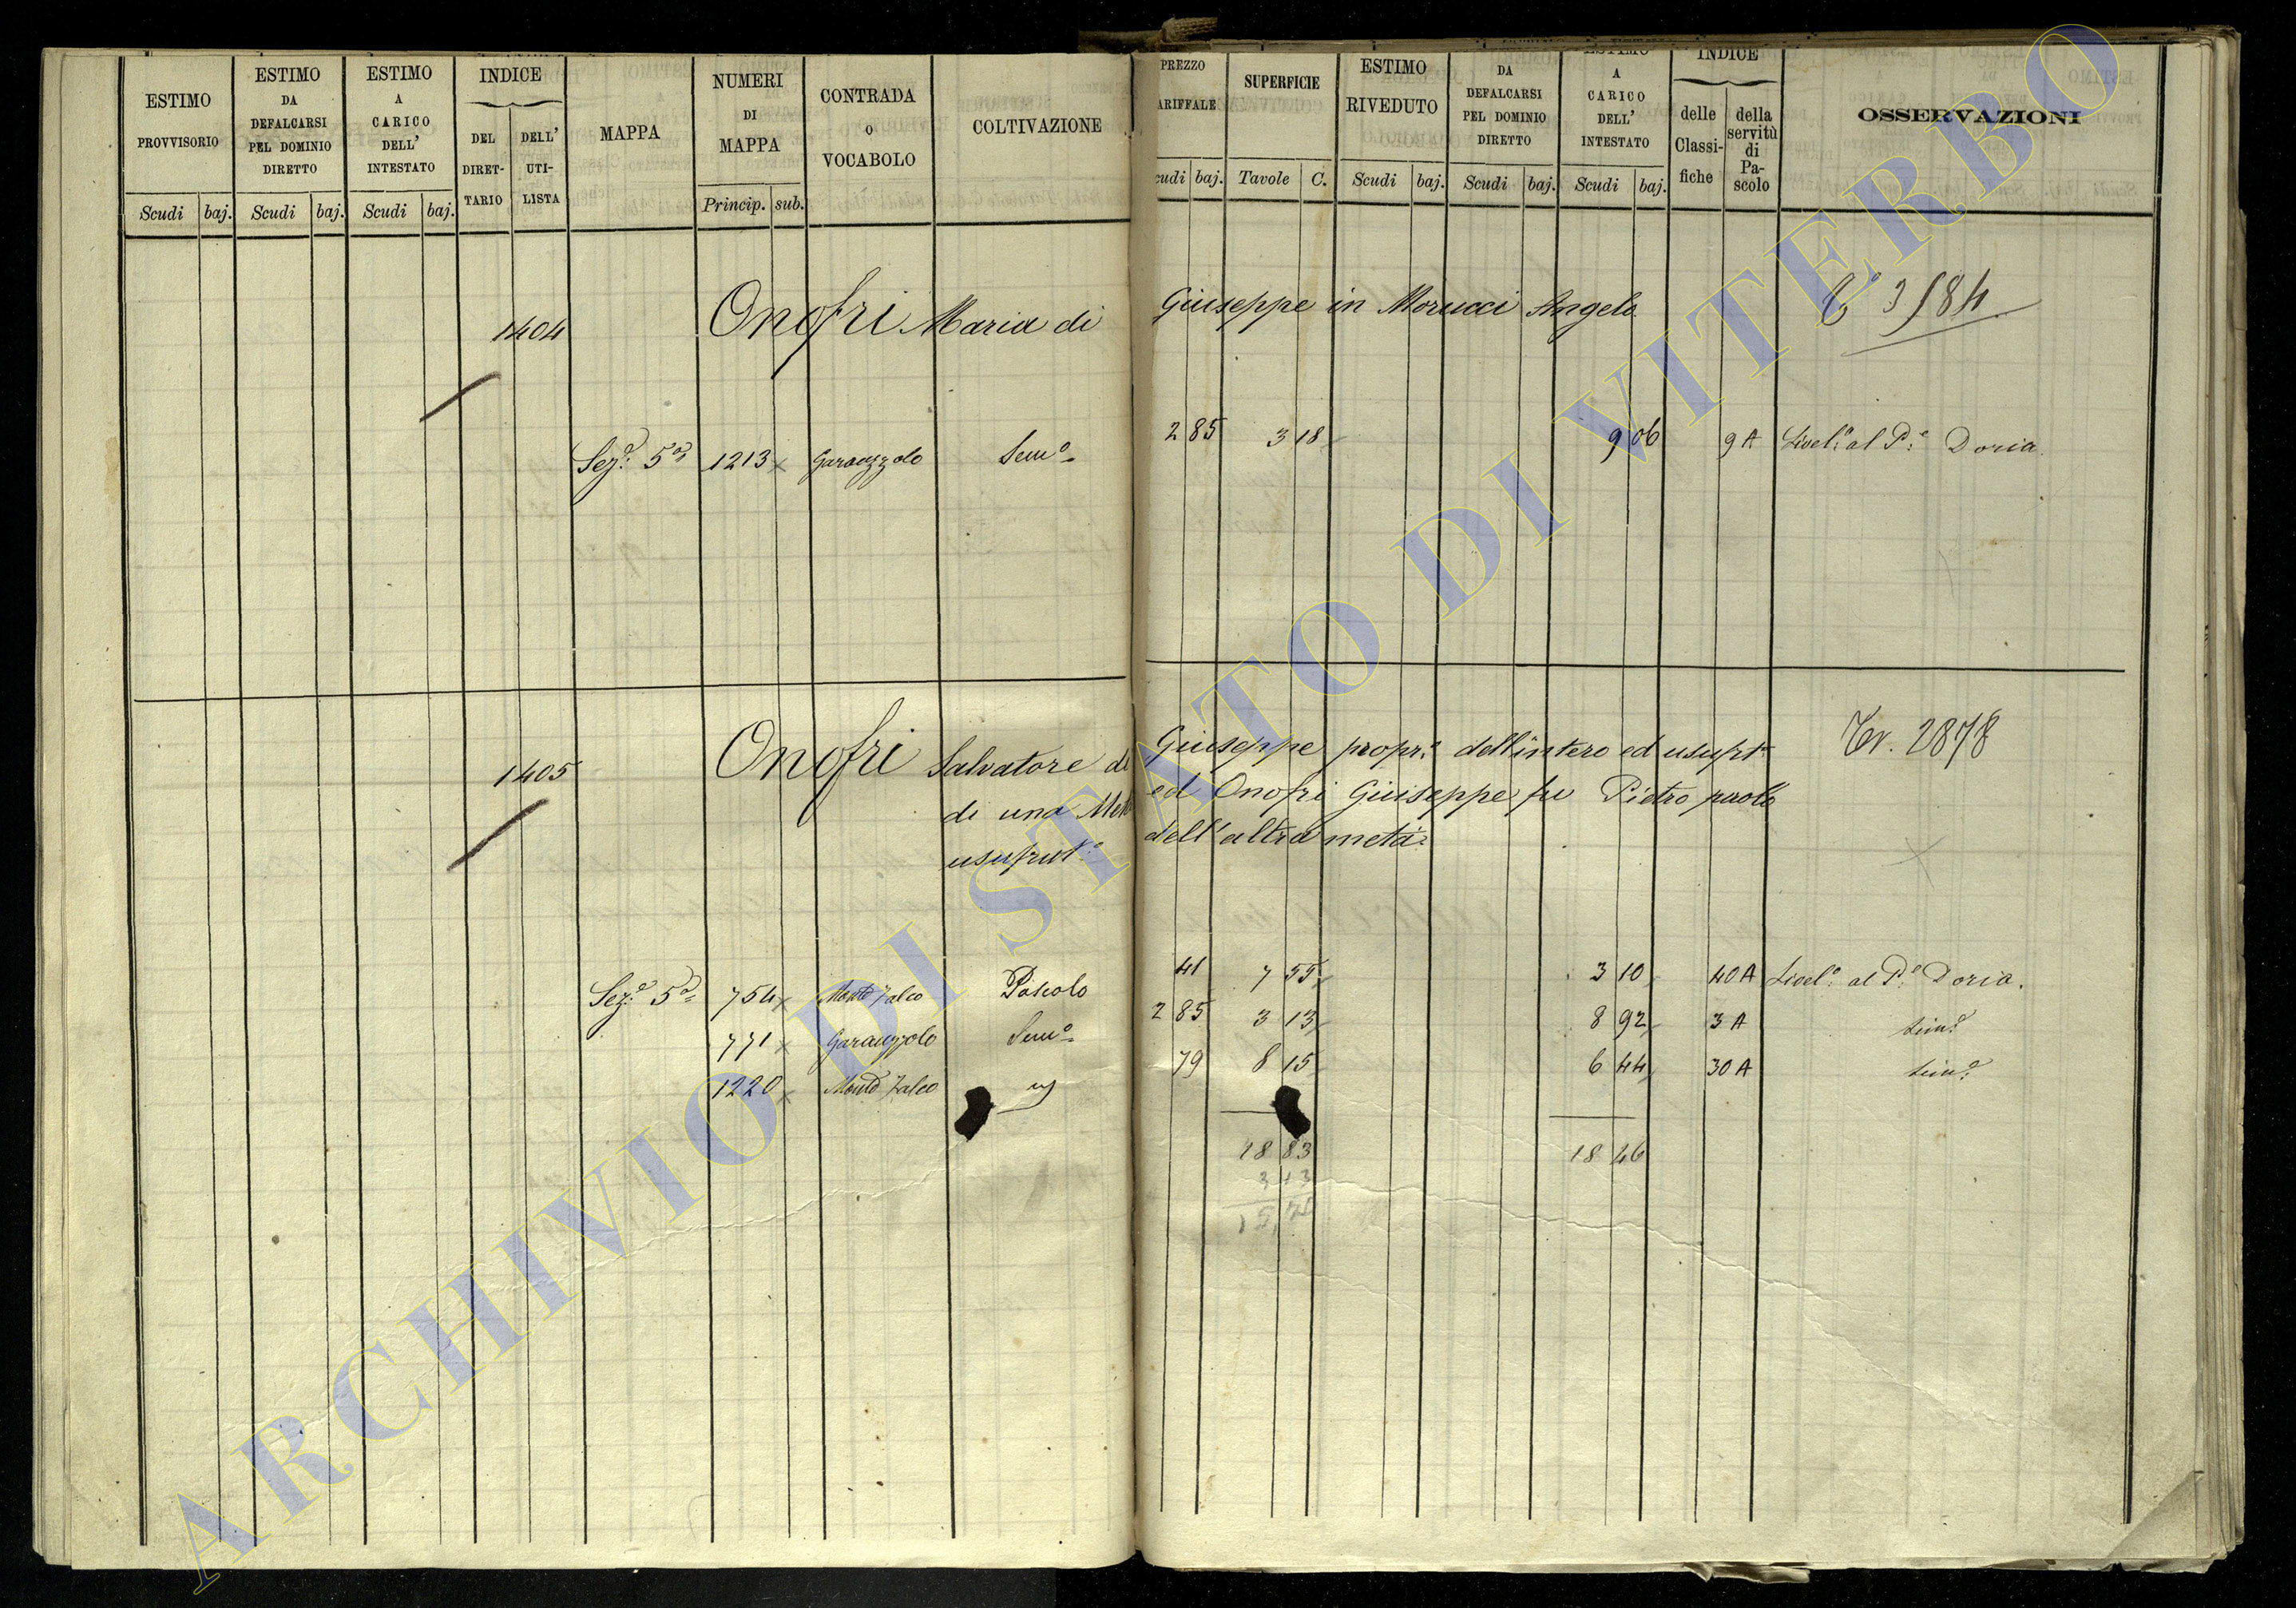 ESTIMO PROVVISORIO
Scudi baj.
ESTIMO DA DEFALCARSI PEL DOMINIO DIRETTO
Scudi baj.
ESTIMO A CARICO DELL' INTESTATO
Scudi baj.
INDICE
DEL DIRET-TARIO
DELL' UTI-LISTA
MAPPA
NUMERI DI MAPPA
Princip. sub.
CONTRADA O VOCABOLO
COLTIVAZIONE
PREZZO ARIFFALE
cudi baj.
SUPERFICIE
Tavole C.
ESTIMO RIVEDUTO
Scudi baj.
DA DEFALCARSI PEL DOMINIO DIRETTO
Scudi baj.
ESTIMO A CARICO DELL' INTESTATO
Scudi baj.
INDICE
delle Classi-fiche
della servitù di Pa-scolo
OSSERVAZIONI
1404 Onofri Maria di Giuseppe in Morucci Angelo
Sezº 5ª 1213 Garauzzolo Semº 2 85 3 18 9 06 9 A Livelº al Pe Doria
1405 Onofri Salvatore di Giuseppe propr.º dell'intero ed usufrº Tr. 2878
di una Metà ed Onofri Giuseppe fu Pietro paolo
usufrutº dell'altra metà
Sezº 5ª 754 Monte Falco Pascolo 41 7 55 3 10 40 A Livelº al Pe Doria.
771 Garauzzolo Semº 2 85 3 13 8 92 3 A sim.e
1220 Monte Falco 79 8 15 6 44 30 A sim.e
18 83 18 46
3 13
15 70
ARCHIVIO DI STATO DI VITERBO